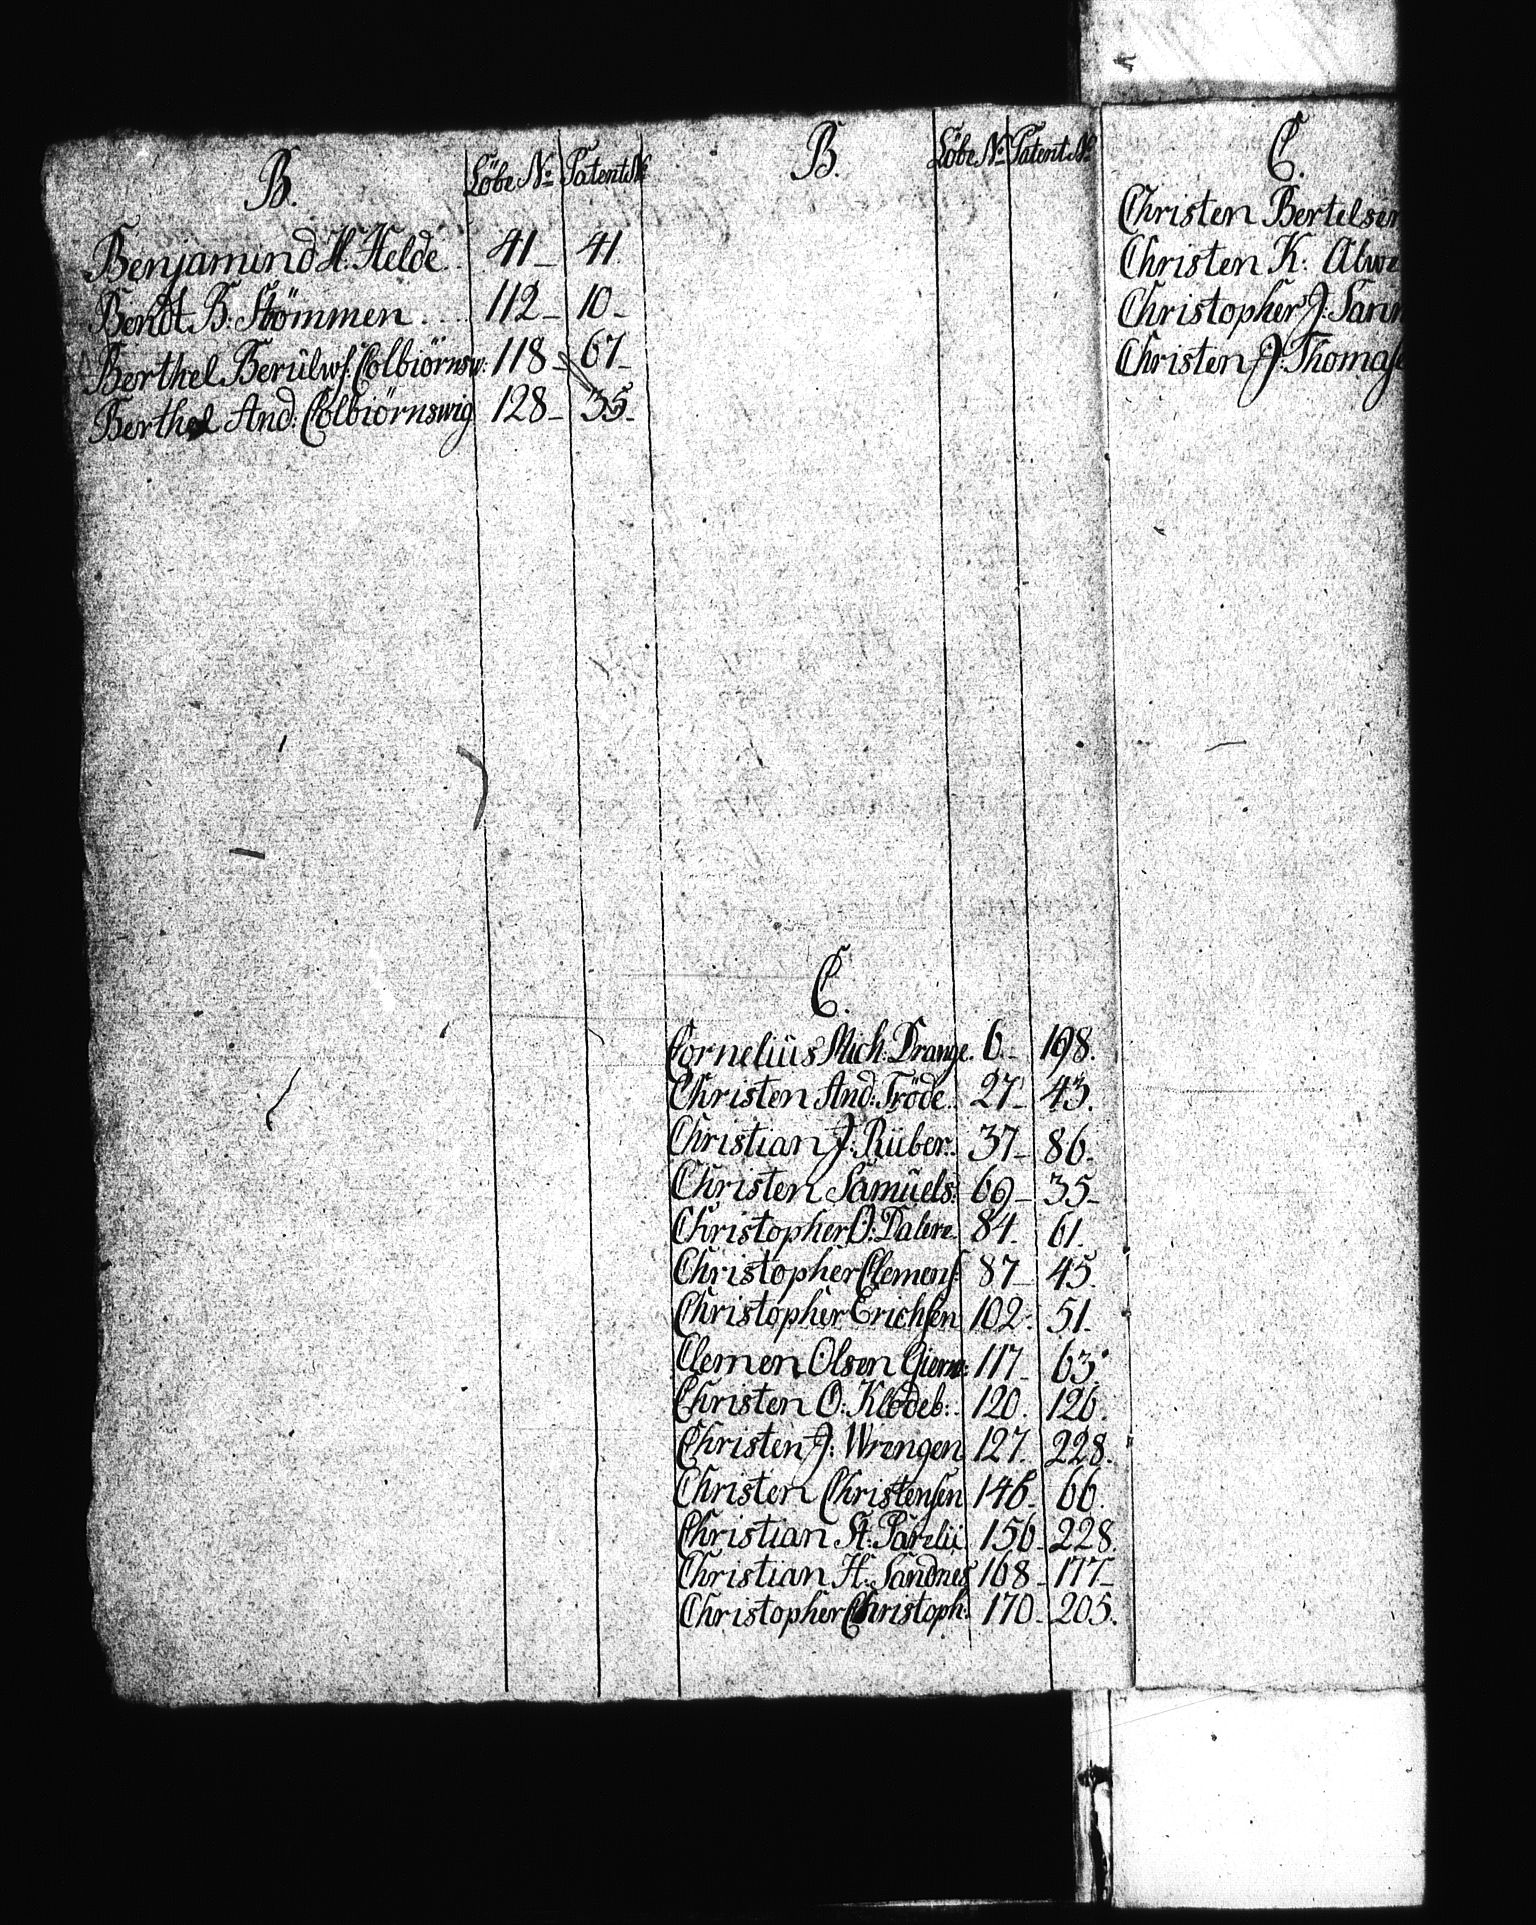 B. Löbe No Patent No
Benjamind H. Helde. 41 - 41.
Bendt B. Stömmen .... 112 - 10 -
Berthel Berülws. Colbiörnsw: 118 - 67 -
Berthel And: Colbiörnswig 128 - 35 -
B. Löbe No Patent No
C.
Cornelius Mich: Drange. 6 - 198.
Christen And: Tröde.. 27 - 43.
Christian J: Rüber.. 37 - 86.
Christen Samüels: 69 - 35 -
Christopher O: Dalere 84. 61.
Christopher Clemens: 87 - 45.
Christopher Erichsen 102. 51.
Clemen Olsen 117 - 63.
Christen O: Klödeb: 120. 126.
Christen J: Wrengen 127. 228.
Christen Christensen 146. 66.
Christian St: 156. 228.
Christian H: Sandnes 168 - 177 -
Christopher Christoph: 170 - 205.
C.
Christen Bertelsen
Christen K: Alwe
Christopher J: San
Christen J: Thomas